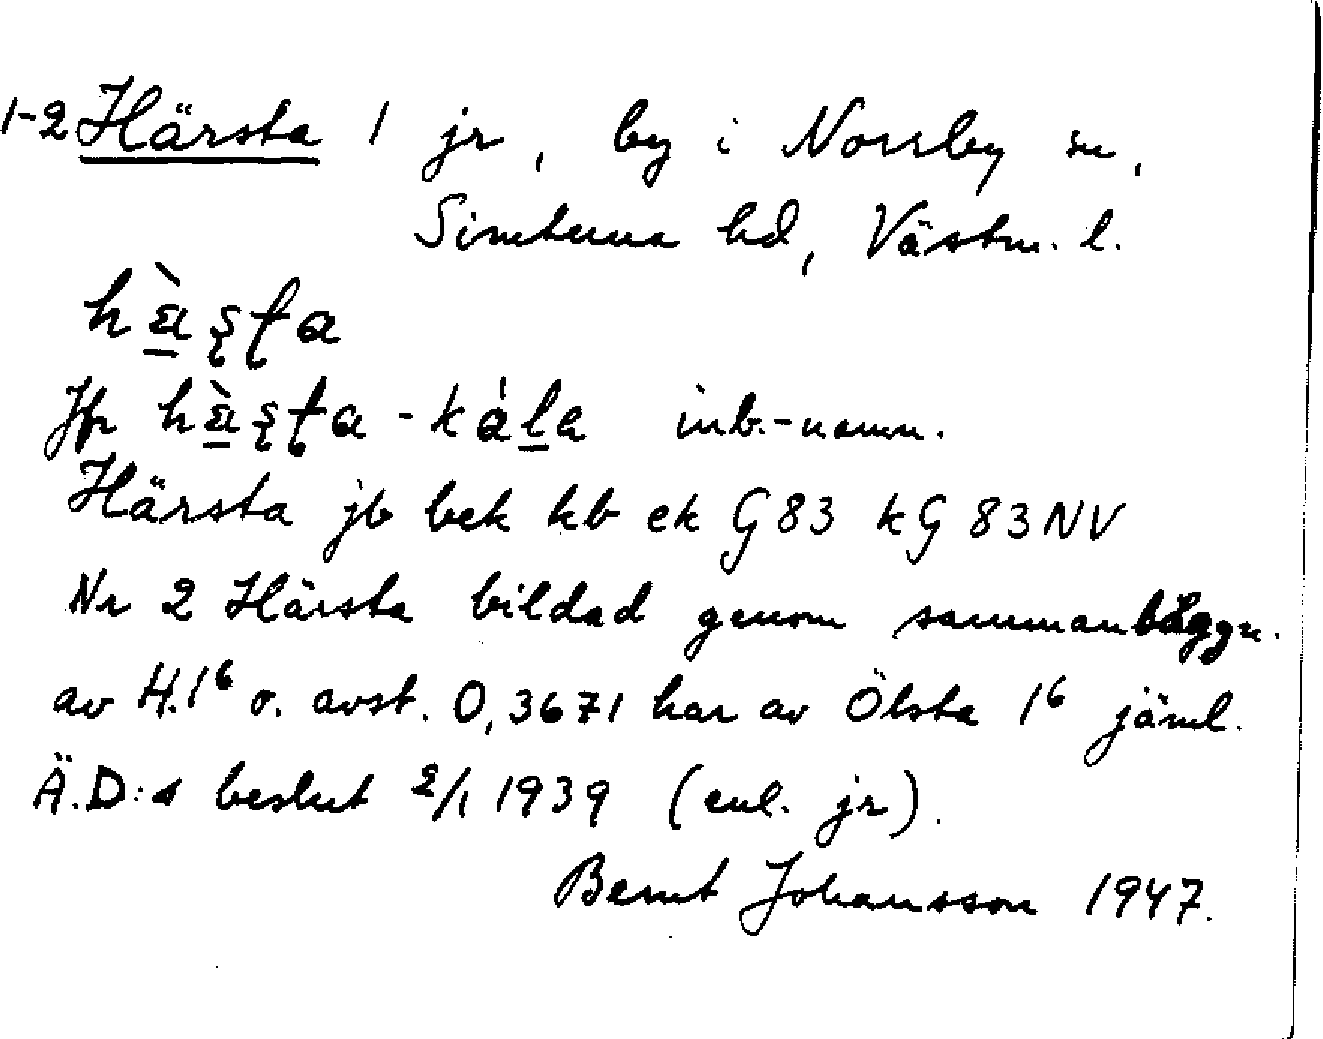 1-2 Härsta 1 jr, by i Norrby sn,
Simtuna hd, Västm. l.
Jfr inb.-namn.
Härsta jb bek kb ek G 83 kG 83 NV
Nr 2 Härsta bildad genom sammanläggn.
av H.1⁶ o. avst. 0,3671 har av Ölsta 1⁶ jäml.
Ä.D:s beslut 2/1 1939 (enl. jr).
Bernt Johansson 1947.